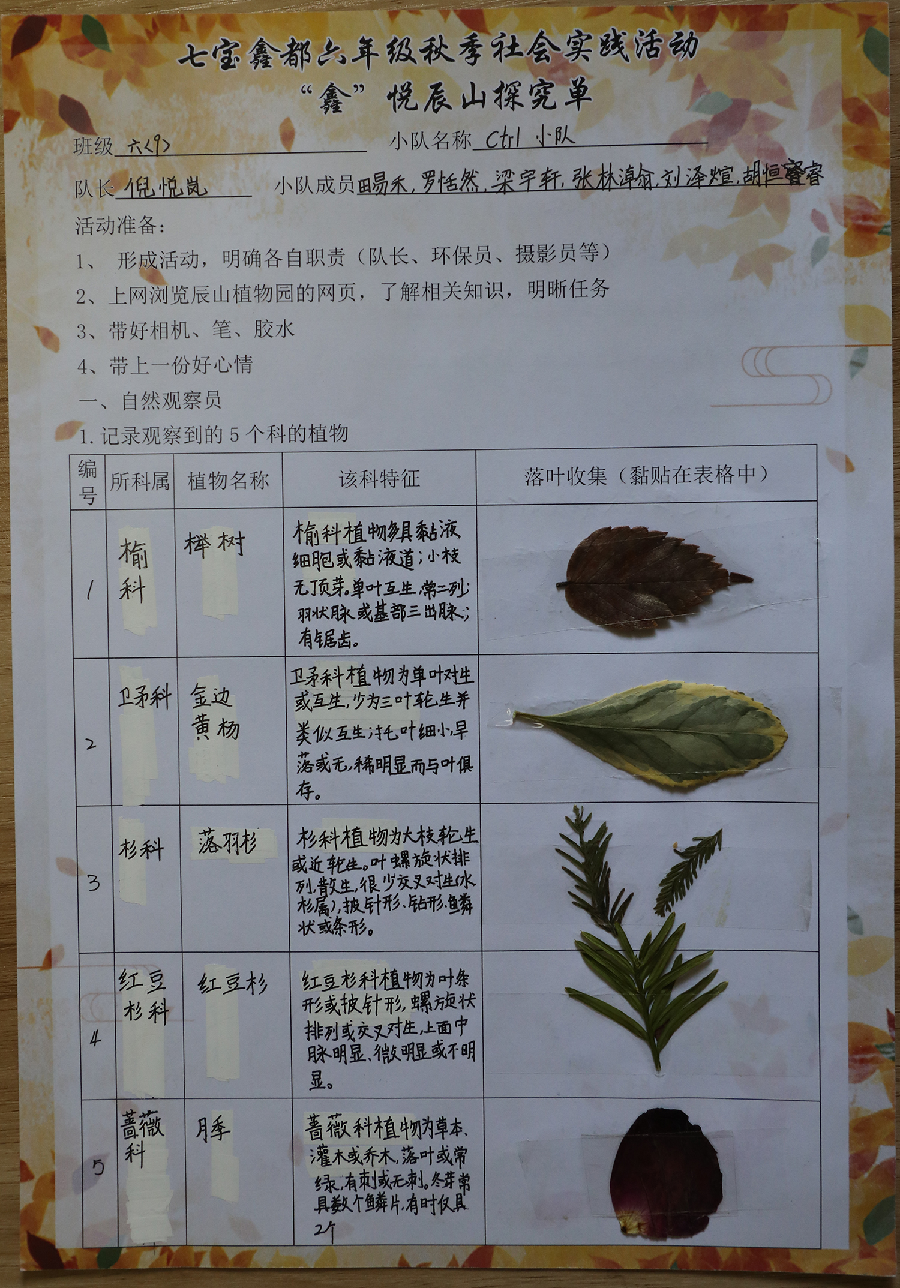 七宝鑫都六年级秋季社会实践活动
“鑫”悦辰山探究单
班级 六<9> 小队名称 Ctrl 小队
队长 倪悦岚 小队成员 田易禾,罗恬然,梁宇轩,张林淖翁,刘泽煊,胡恒睿
活动准备:
1、 形成活动,明确各自职责(队长、环保员、摄影员等)
2、上网浏览辰山植物园的网页,了解相关知识,明晰任务
3、带好相机、笔、胶水
4、带上一份好心情
一、自然观察员
1.记录观察到的5个科的植物
编号 所科属 植物名称 该科特征 落叶收集(黏贴在表格中)
1
榆
科
榉树
榆科植物多具黏液
细胞或黏液道;小枝
无顶芽。单叶互生,常二列;
羽状脉或基部三出脉;
有锯齿。
2
卫矛科
金边
黄杨
卫矛科植物为单叶对生
或互生,少为三叶轮生并
类似互生;托叶细小,早
落或无,稀明显而与叶俱
存。
3
杉科
落羽杉
杉科植物为大枝轮生
或近轮生。叶螺旋状排
列,散生,很少交叉对生(水
杉属),披针形、钻形、鳞
状或条形。
4
红豆
杉科
红豆杉
红豆杉科植物为叶条
形或披针形,螺旋状
排列或交叉对生,上面中
脉明显、微明显或不明
显。
5
蔷薇
科
月季
蔷薇科植物为草本、
灌木或乔木,落叶或常
绿,有刺或无刺。冬芽常
具数个鳞片,有时仅具
2个